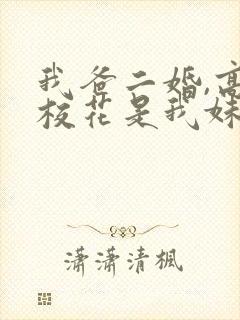 我爸二婚,高
校花是我妹
潇潇清楓